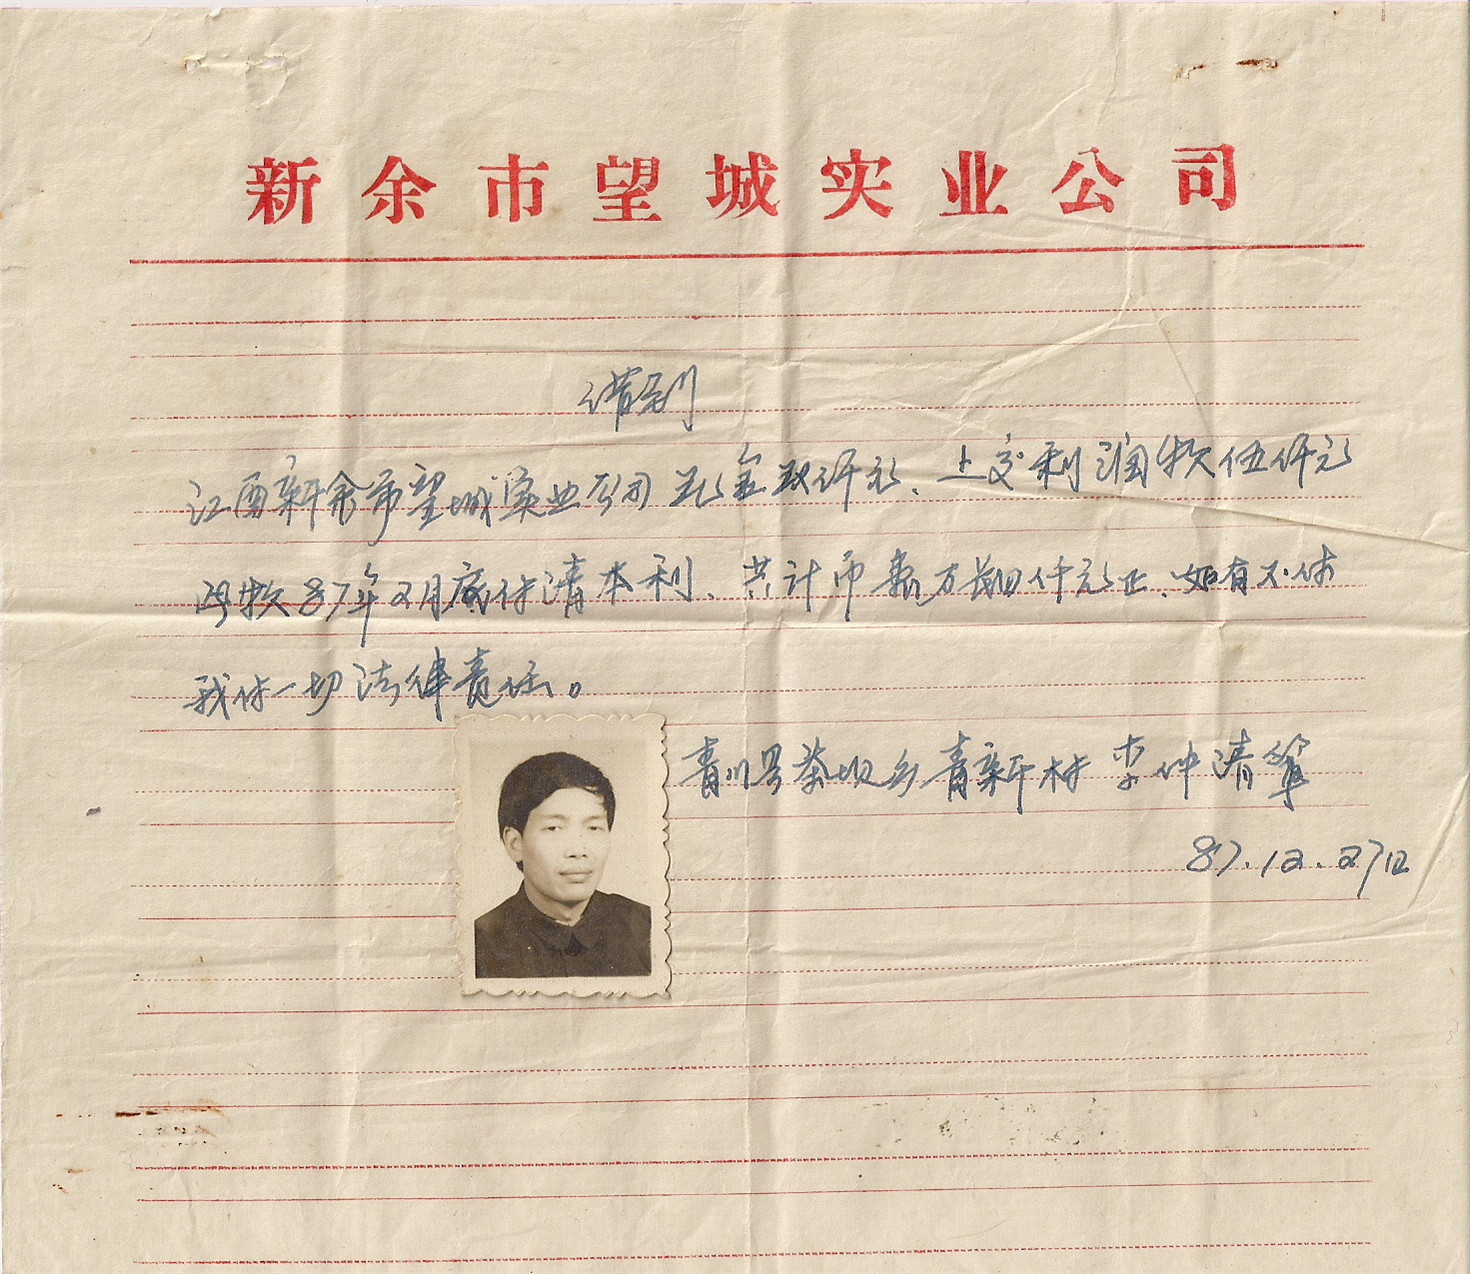 新余市望城实业公司
借到
江西新余市望城实业公司现金玖仟元、上交利润款伍仟元
此款87年2月底付清本利、共计币壹万肆仟元正、如有不付
我付一切法律责任。
青川县茶坝乡青新村 李仲清笔
87.12.27日